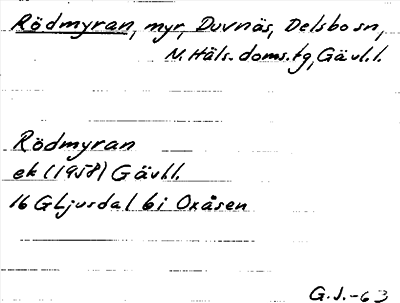 Rödmyran, myr, Duvnäs, Delsbo sn,
N. Häls. doms. tg, Gävl. l.
Rödmyran
ek (1958) Gävl l.
16 G Ljusdal 6 i Oxåsen
G. J. -63